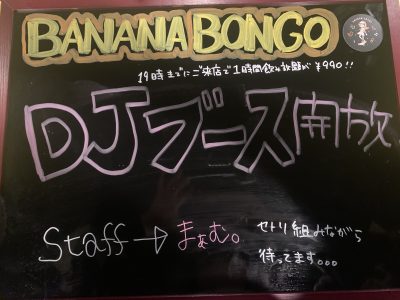 BANANA BONGO
19時までにご来店で1時間飲み放題が¥990!!
DJブース開放
Staff → まぁむ。 セトリ組みながら
待ってます。。。